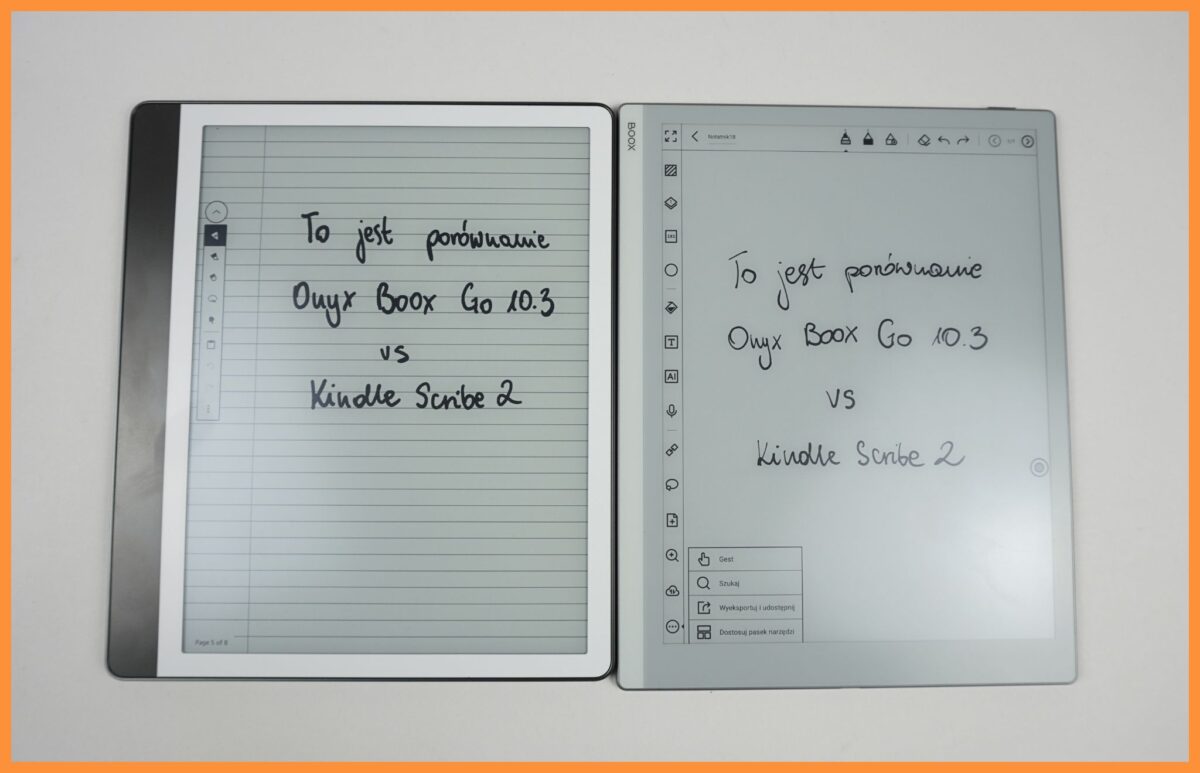 To jest porównanie
Onyx Boox Go 10.3
vs
Kindle Scribe 2
Page 5 of 8
BOOX
Notatnik18
1/1
To jest porównanie
Onyx Boox Go 10.3
vs
Kindle Scribe 2
T
AI
Gest
Szukaj
Wyeksportuj i udostępnij
Dostosuj pasek narzędzi